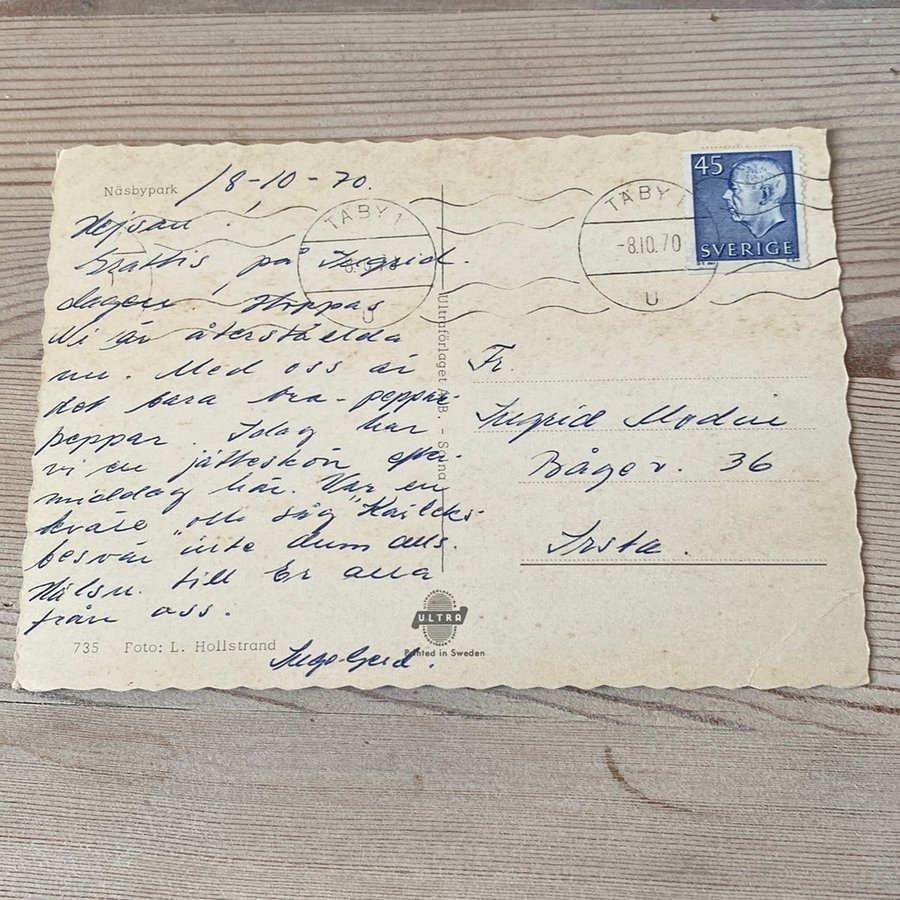 Näsbypark
/8-10-70.
Hejsan!
Grattis på Ingrid
dagen, Hoppas
Ni är återställda
nu. Med oss är
det bara bra - peppar
peppar. Idag har
vi en jätteskön efter-
middag här. Var en
kväll o såg "Kärleks-
besvär" inte dum alls.
Hälsn. till Er alla
från oss.
735 Foto: L. Hollstrand
TÄBY 1
-8.10.70
U
TÄBY 1
-8.10.70
U
45
SVERIGE
Ultraförlaget A.B. - Solna
Fr.
Ingrid Modin
Bågev. 36
Irsta.
ULTRA
Printed in Sweden